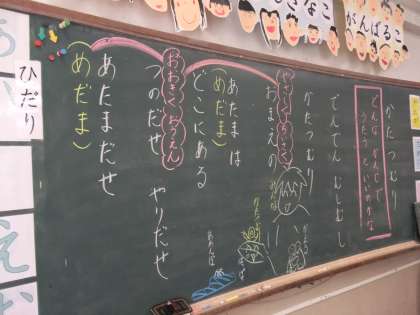 かたつむり
どんな かんじで
うたうと いいのかな
でんでん むしむし
かたつむり
やさしくちいさく
おまえの
あたまは
(めだま)
どこにある
おおきく おうえん
つのだせ やりだせ
あたまだせ
(めだま)
ひだり
がんばるこ